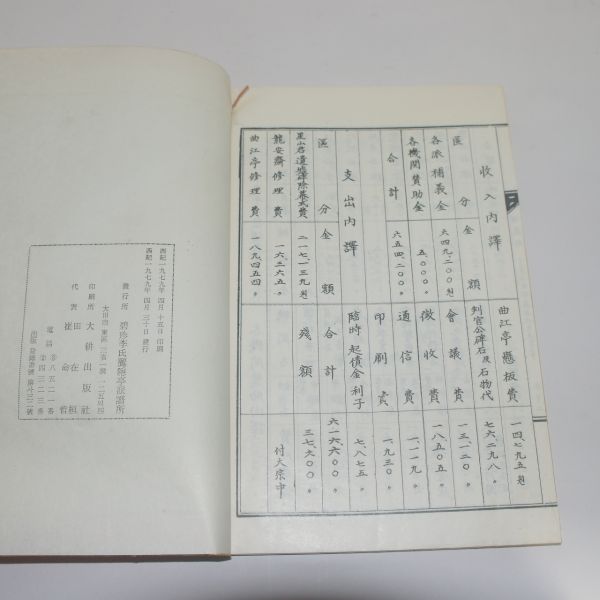 收入內譯
區分 金額
各派補義金 六四九,二〇〇원
各機關贊助金 五,〇〇〇〃
合計 六五四,二〇〇〃
支出內譯
區分 金額
遺墟碑除幕式費 二一七,一三九원
龍安齋修理費 一六三六五〃
曲江亭修理費 一八九,四五四〃
曲江亭懸板費 一四,七九五원
判官公碑石及石物代 七六二九八〃
會議費 一三,一二〇〃
徵收費 一八五〇五〃
通信費 一,一一九〃
印刷費 一,九三〇〃
臨時起債金利子 七,八七五〃
合計 六一六六〇〇〃
殘額 三七,六〇〇〃
付大宗中
西紀一九七九年四月十五日 印刷
西紀一九七九年四月三十日 發行
發行所 碧珍李氏
大田市 東區
印刷所 大耕出版社
代表 田在桓
崔命哲
電話 ②八五二一番
②四三二三番
出版登錄